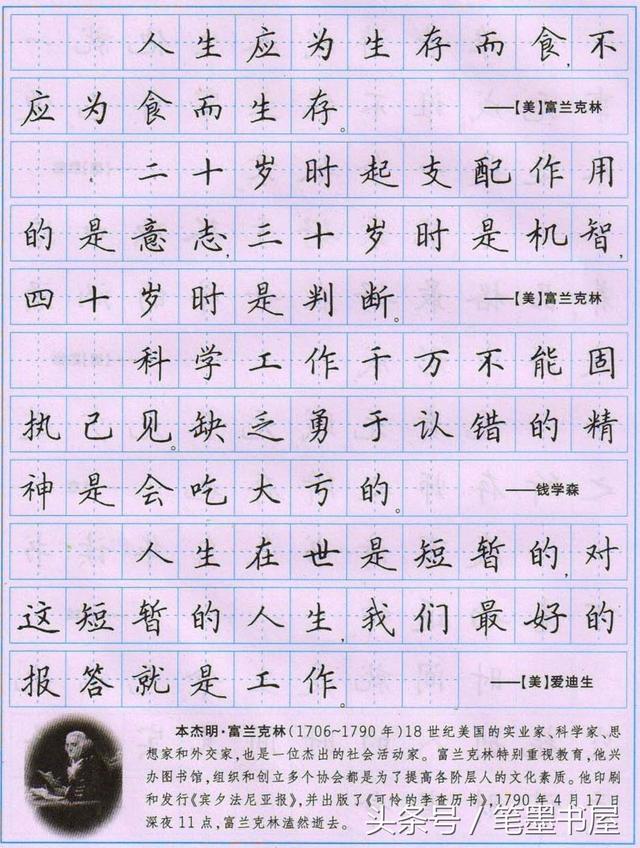 人生应为生存而食,不
应为食而生存。 ——【美】富兰克林
二十岁时起支配作用
的是意志,三十岁时是机智,
四十岁时是判断。 ——【美】富兰克林
科学工作千万不能固
执己见。缺乏勇于认错的精
神是会吃大亏的。 ——钱学森
人生在世是短暂的,对
这短暂的人生,我们最好的
报答就是工作。 ——【美】爱迪生
本杰明·富兰克林(1706~1790年)18世纪美国的实业家、科学家、思
想家和外交家,也是一位杰出的社会活动家。富兰克林特别重视教育,他兴
办图书馆,组织和创立多个协会都是为了提高各阶层人的文化素质。他印刷
和发行《宾夕法尼亚报》,并出版了《可怜的李查历书》,1790年4月17日
深夜11点,富兰克林溘然逝去。
头条号/笔墨书屋